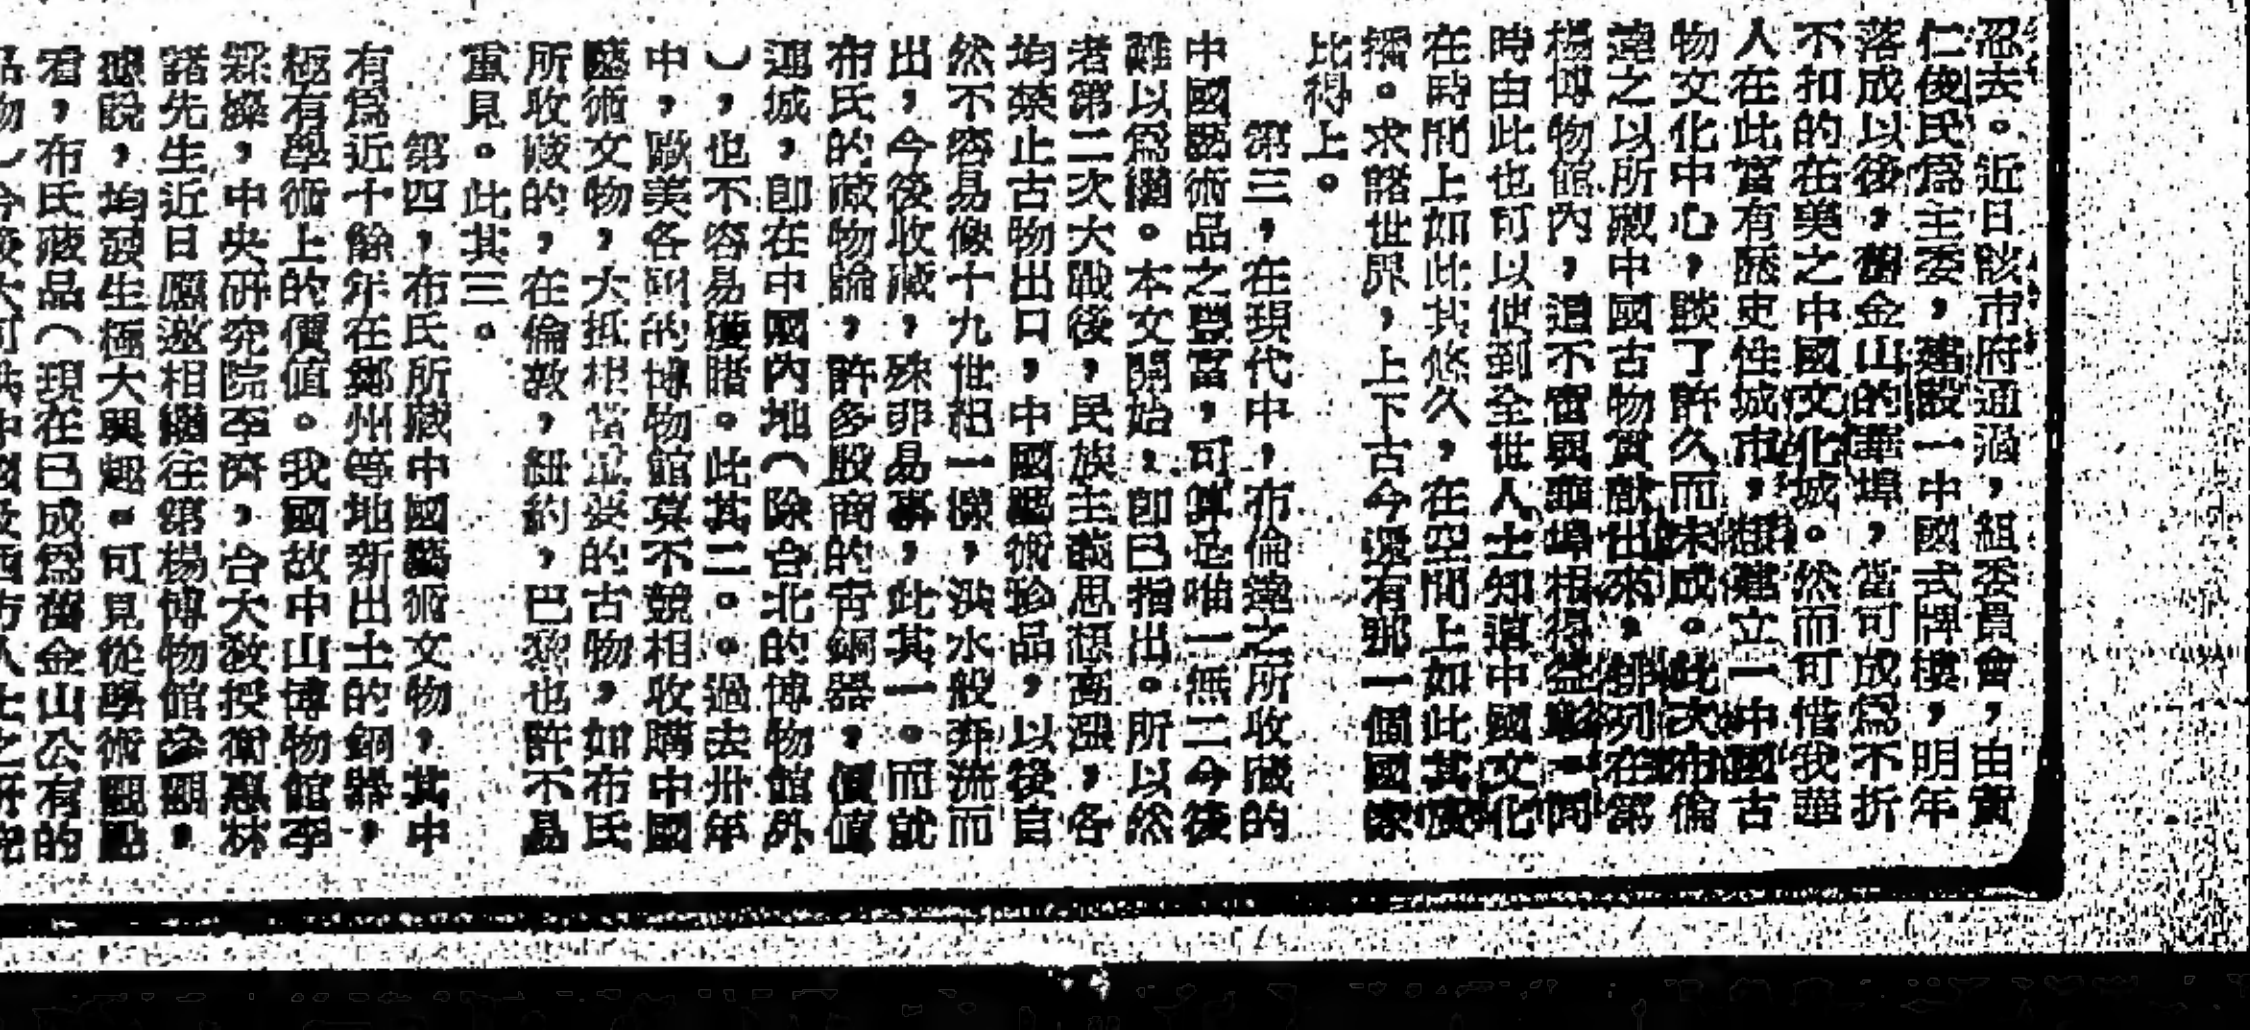 忍去。近日該市府通過,組委員會,由黃
仁俊氏爲主委,建設一中國式牌樓,明年
落成以後,舊金山的華埠,當可成爲不折
不扣的在美之中國文化城。然而可惜我華
人在此富有歷史性城市,想建立一中國古
物文化中心,談了許久而未成。此次布倫
達之以所藏中國古物貢獻出來,排列在第
楊博物館內,這不啻與華埠相得益彰,同
時由此也可以使到全世人士知道中國文化
在時間上如此其悠久,在空間上如此其廣
播。求諸世界,上下古今還有那一個國家
比得上。
第三,在現代中,布倫達之所收藏的
中國藝術品之豐富,可算是唯一無二今後
難以爲繼。本文開始,即已指出。所以然
者第二次大戰後,民族主義思想高漲,各
均禁止古物出口,中國藝術珍品,以後自
然不容易像十九世紀一樣,洪水般奔流而
出,今後收藏,殊非易事,此其一。而就
布氏的藏物論,許多殷商的青銅器,價值
連城,即在中國內地(除台北的博物館外
),也不容易獲睹。此其二。。過去卅年
中,歐美各國的博物館莫不競相收購中國
藝術文物,大抵相當重要的古物,如布氏
所收藏的,在倫敦,紐約,巴黎也許不易
重見。此其三。
第四,布氏所藏中國藝術文物,其中
有爲近十餘年在鄭州等地新出土的銅器,
極有學術上的價值。我國故中山博物館李
霖燦,中央研究院李濟,台大教授衛惠林
諸先生近日應邀相繼往第楊博物館參觀,
聽說,均發生極大興趣。可見從學術觀點
看,布氏藏品(現在已成爲舊金山公有的